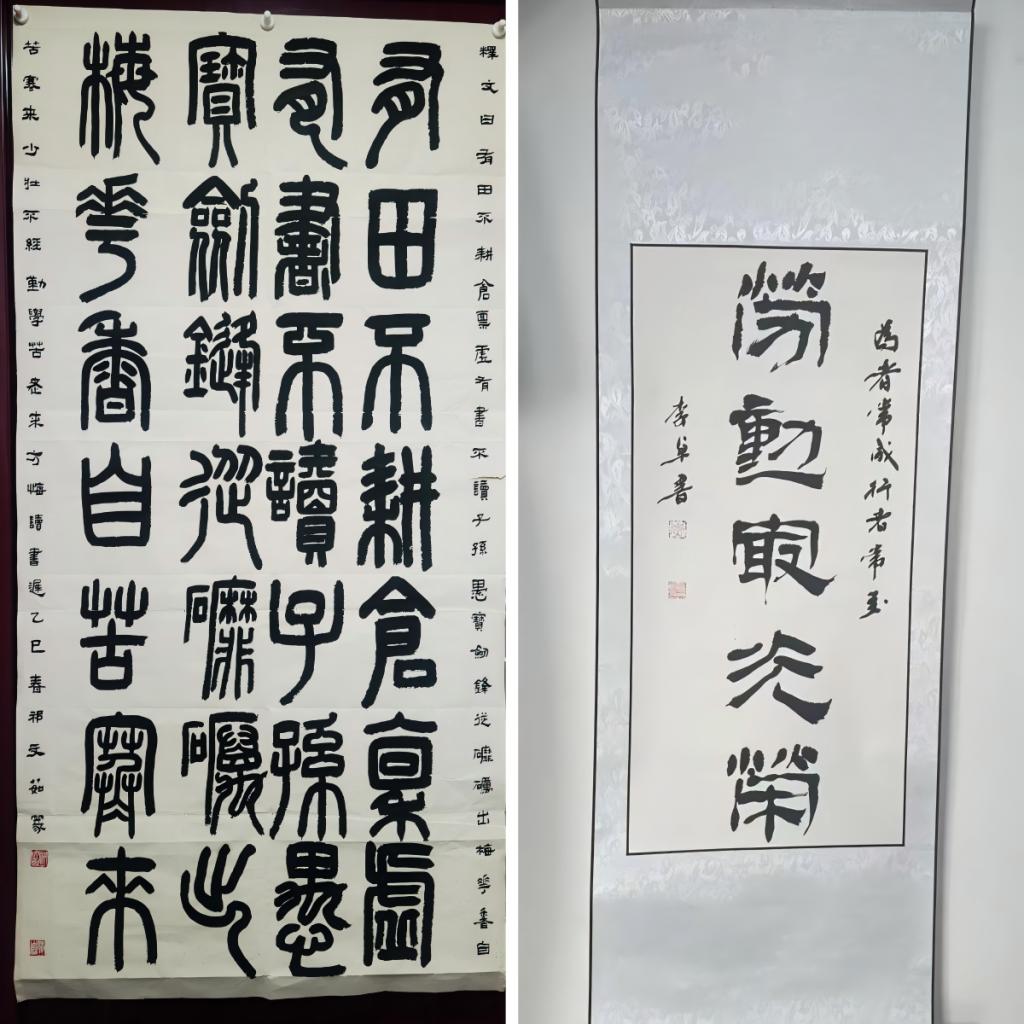 釋文曰有田不耕倉稟虛有書不讀子孫愚寶劍鋒從礳礪出梅華香自
有田不耕倉稟虛
有書不讀子孫愚
寶劍鏠從礳礪出
梅華香自苦寒來
苦寒来少壯不經勤學苦老来方悔讀書遲乙巳春祁文茹篆
為者常成行者常至
勞動冣光榮
李卓書